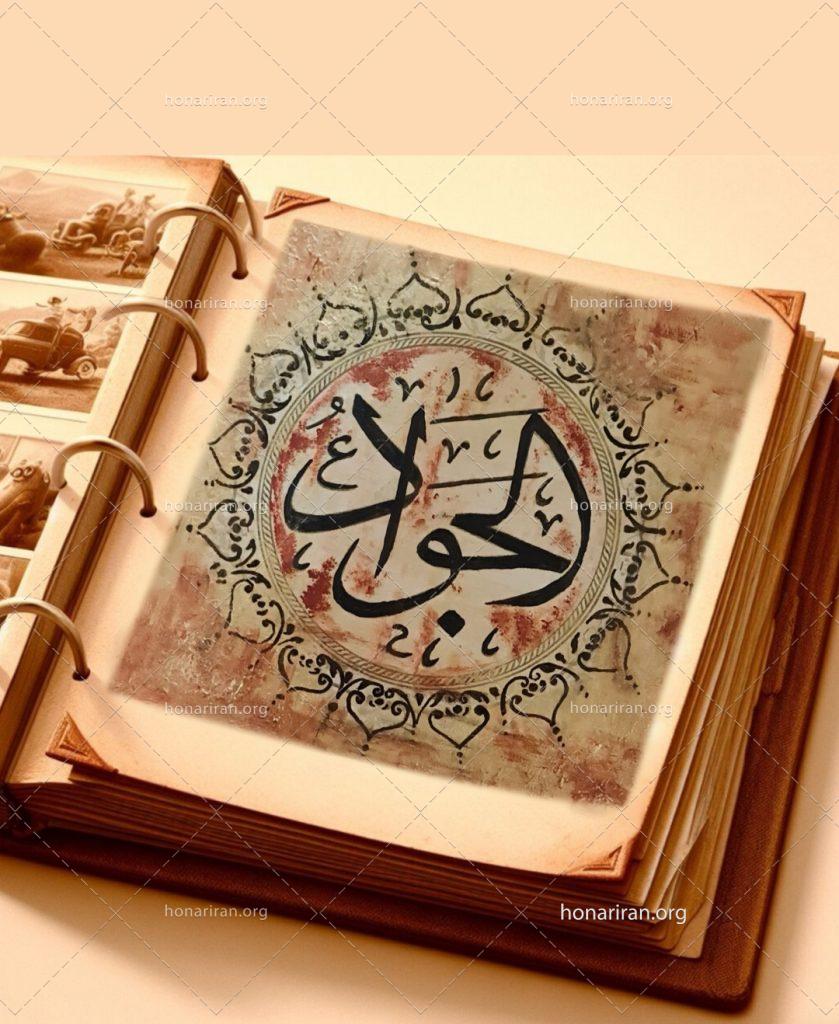 honariran.org honariran.org
honariran.org honariran.org
الجواد
honariran.org honariran.org
honariran.org honariran.org
honariran.org honariran.org